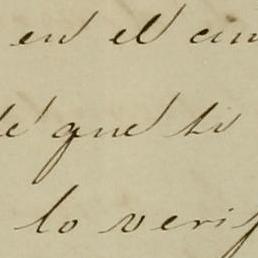 en el cum
de que si
lo verif